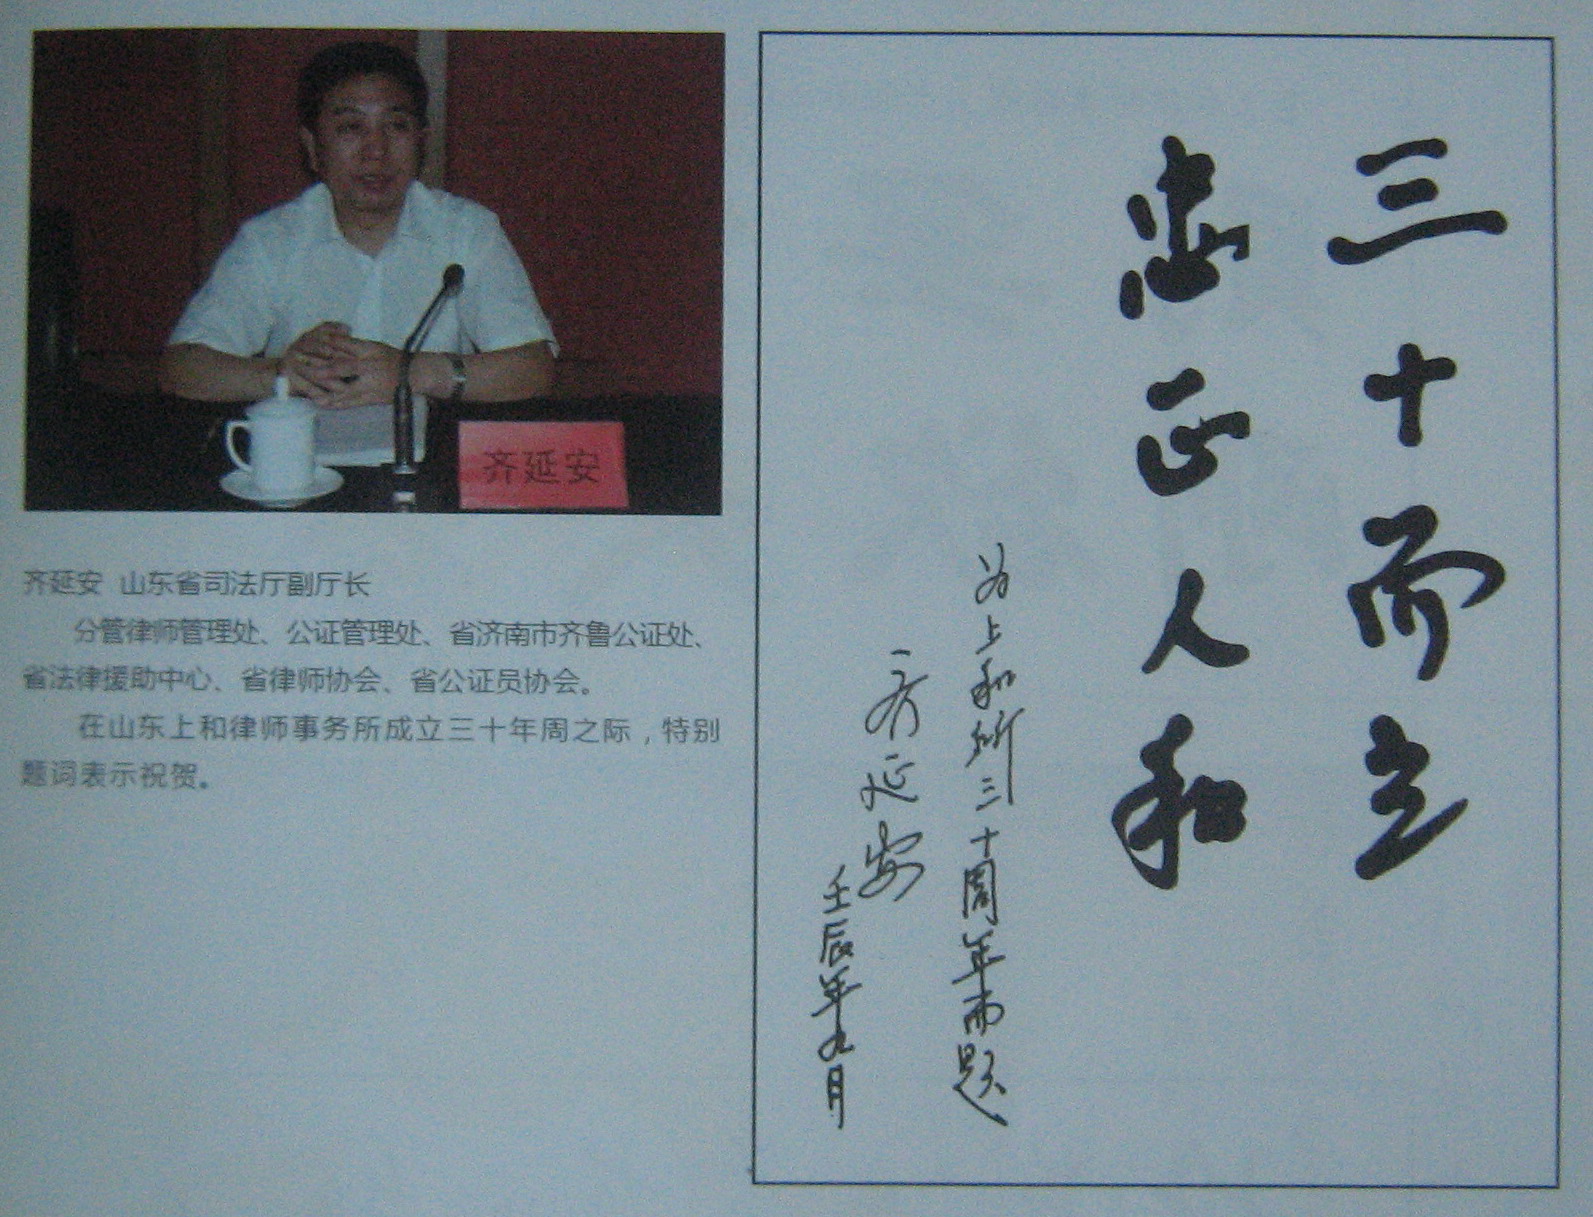 齐延安
齐延安 山东省司法厅副厅长
分管律师管理处、公证管理处、省济南市齐鲁公证处、
省法律援助中心、省律师协会、省公证员协会。
在山东上和律师事务所成立三十年周之际，特别
题词表示祝贺。
三十而立
忠正人和
为上和所三十周年而题
齐延安
壬辰年九月